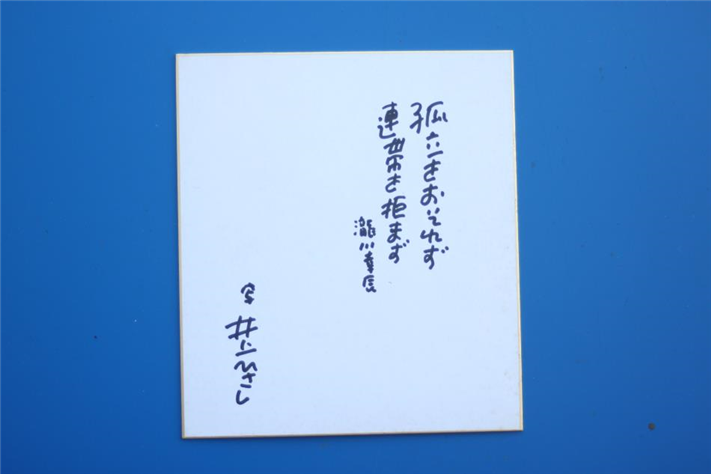 孤立をおそれず
連帯を拒まず
瀧川幸辰
写 井上ひさし